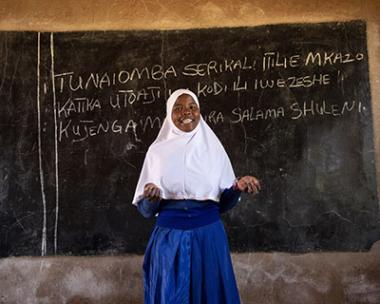 TUNAIOMBA SERIKALI ITILIE MKAZO
KATIKA KODI ILI IWEZESHE
KUJENGA SALAMA SHULENI